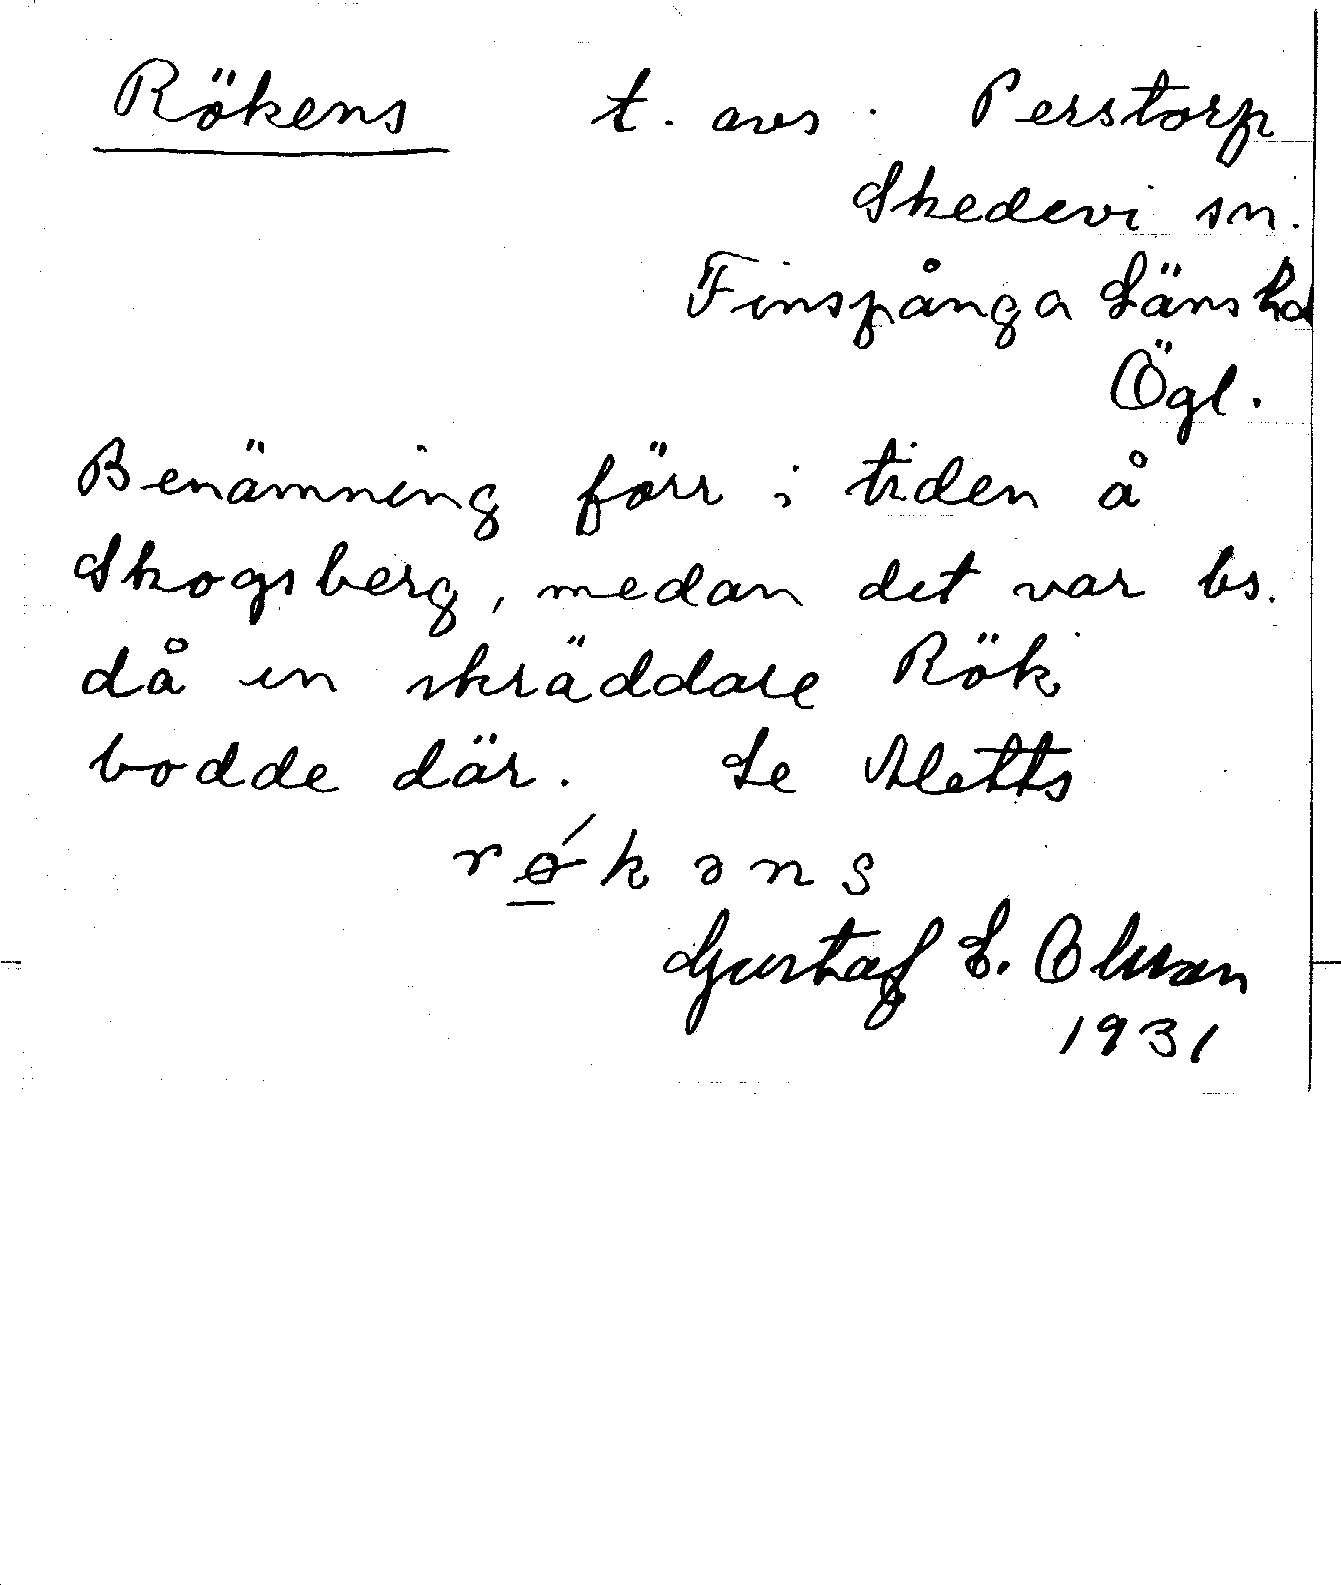 Rökens t. avs. Perstorp
Skedevi sn.
Finspånga Länshd
Ögl.
Benämning förr i tiden å
Skogsberg, medan det var bs.
då en skräddare Rök
bodde där. Se Aletts
rǿkəns
Gustaf E. Olsson
1931